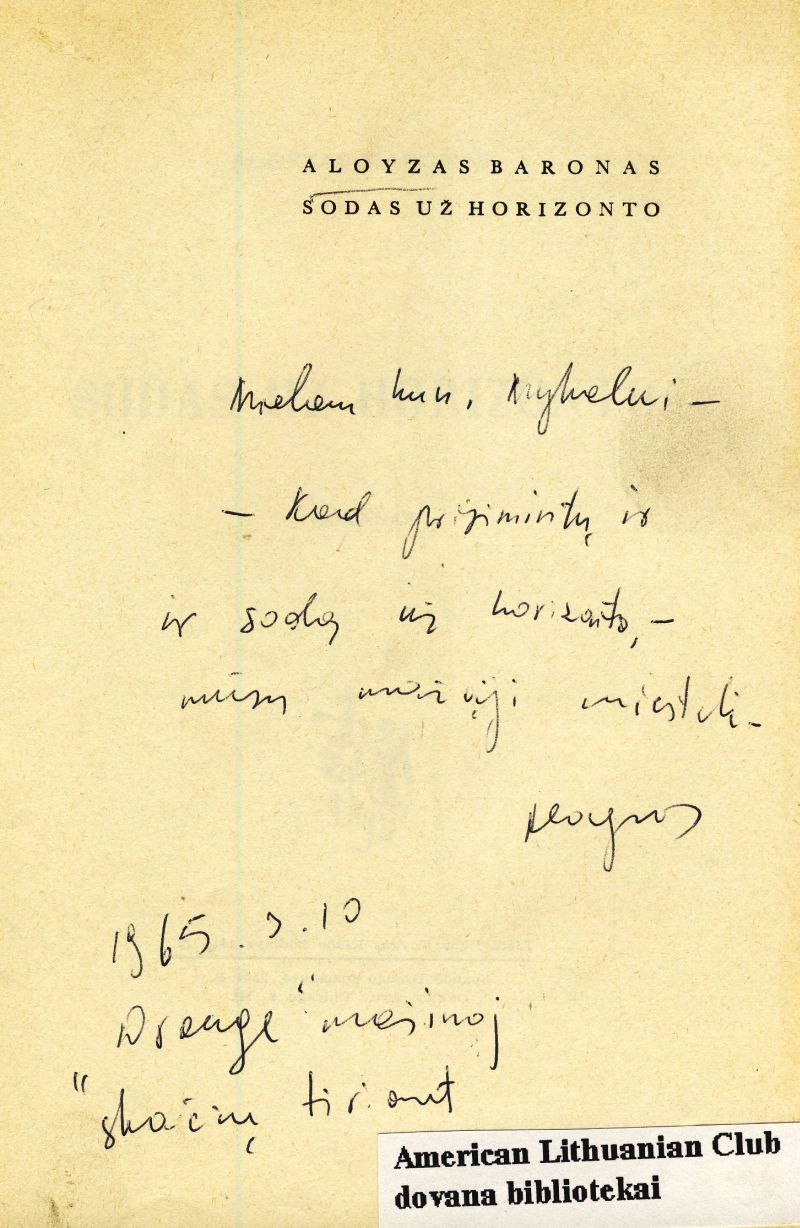 ALOYZAS BARONAS
SODAS UŽ HORIZONTO
Mielam kun. Mykolui –
– Kad prisimintų ir
ir sodą už horizonto, –
mūsų mažąjį miestelį –
Aloyzas
1965. 3. 10
Drauge" mašinoj
"skaičių tiriant
American Lithuanian Club
dovana bibliotekai